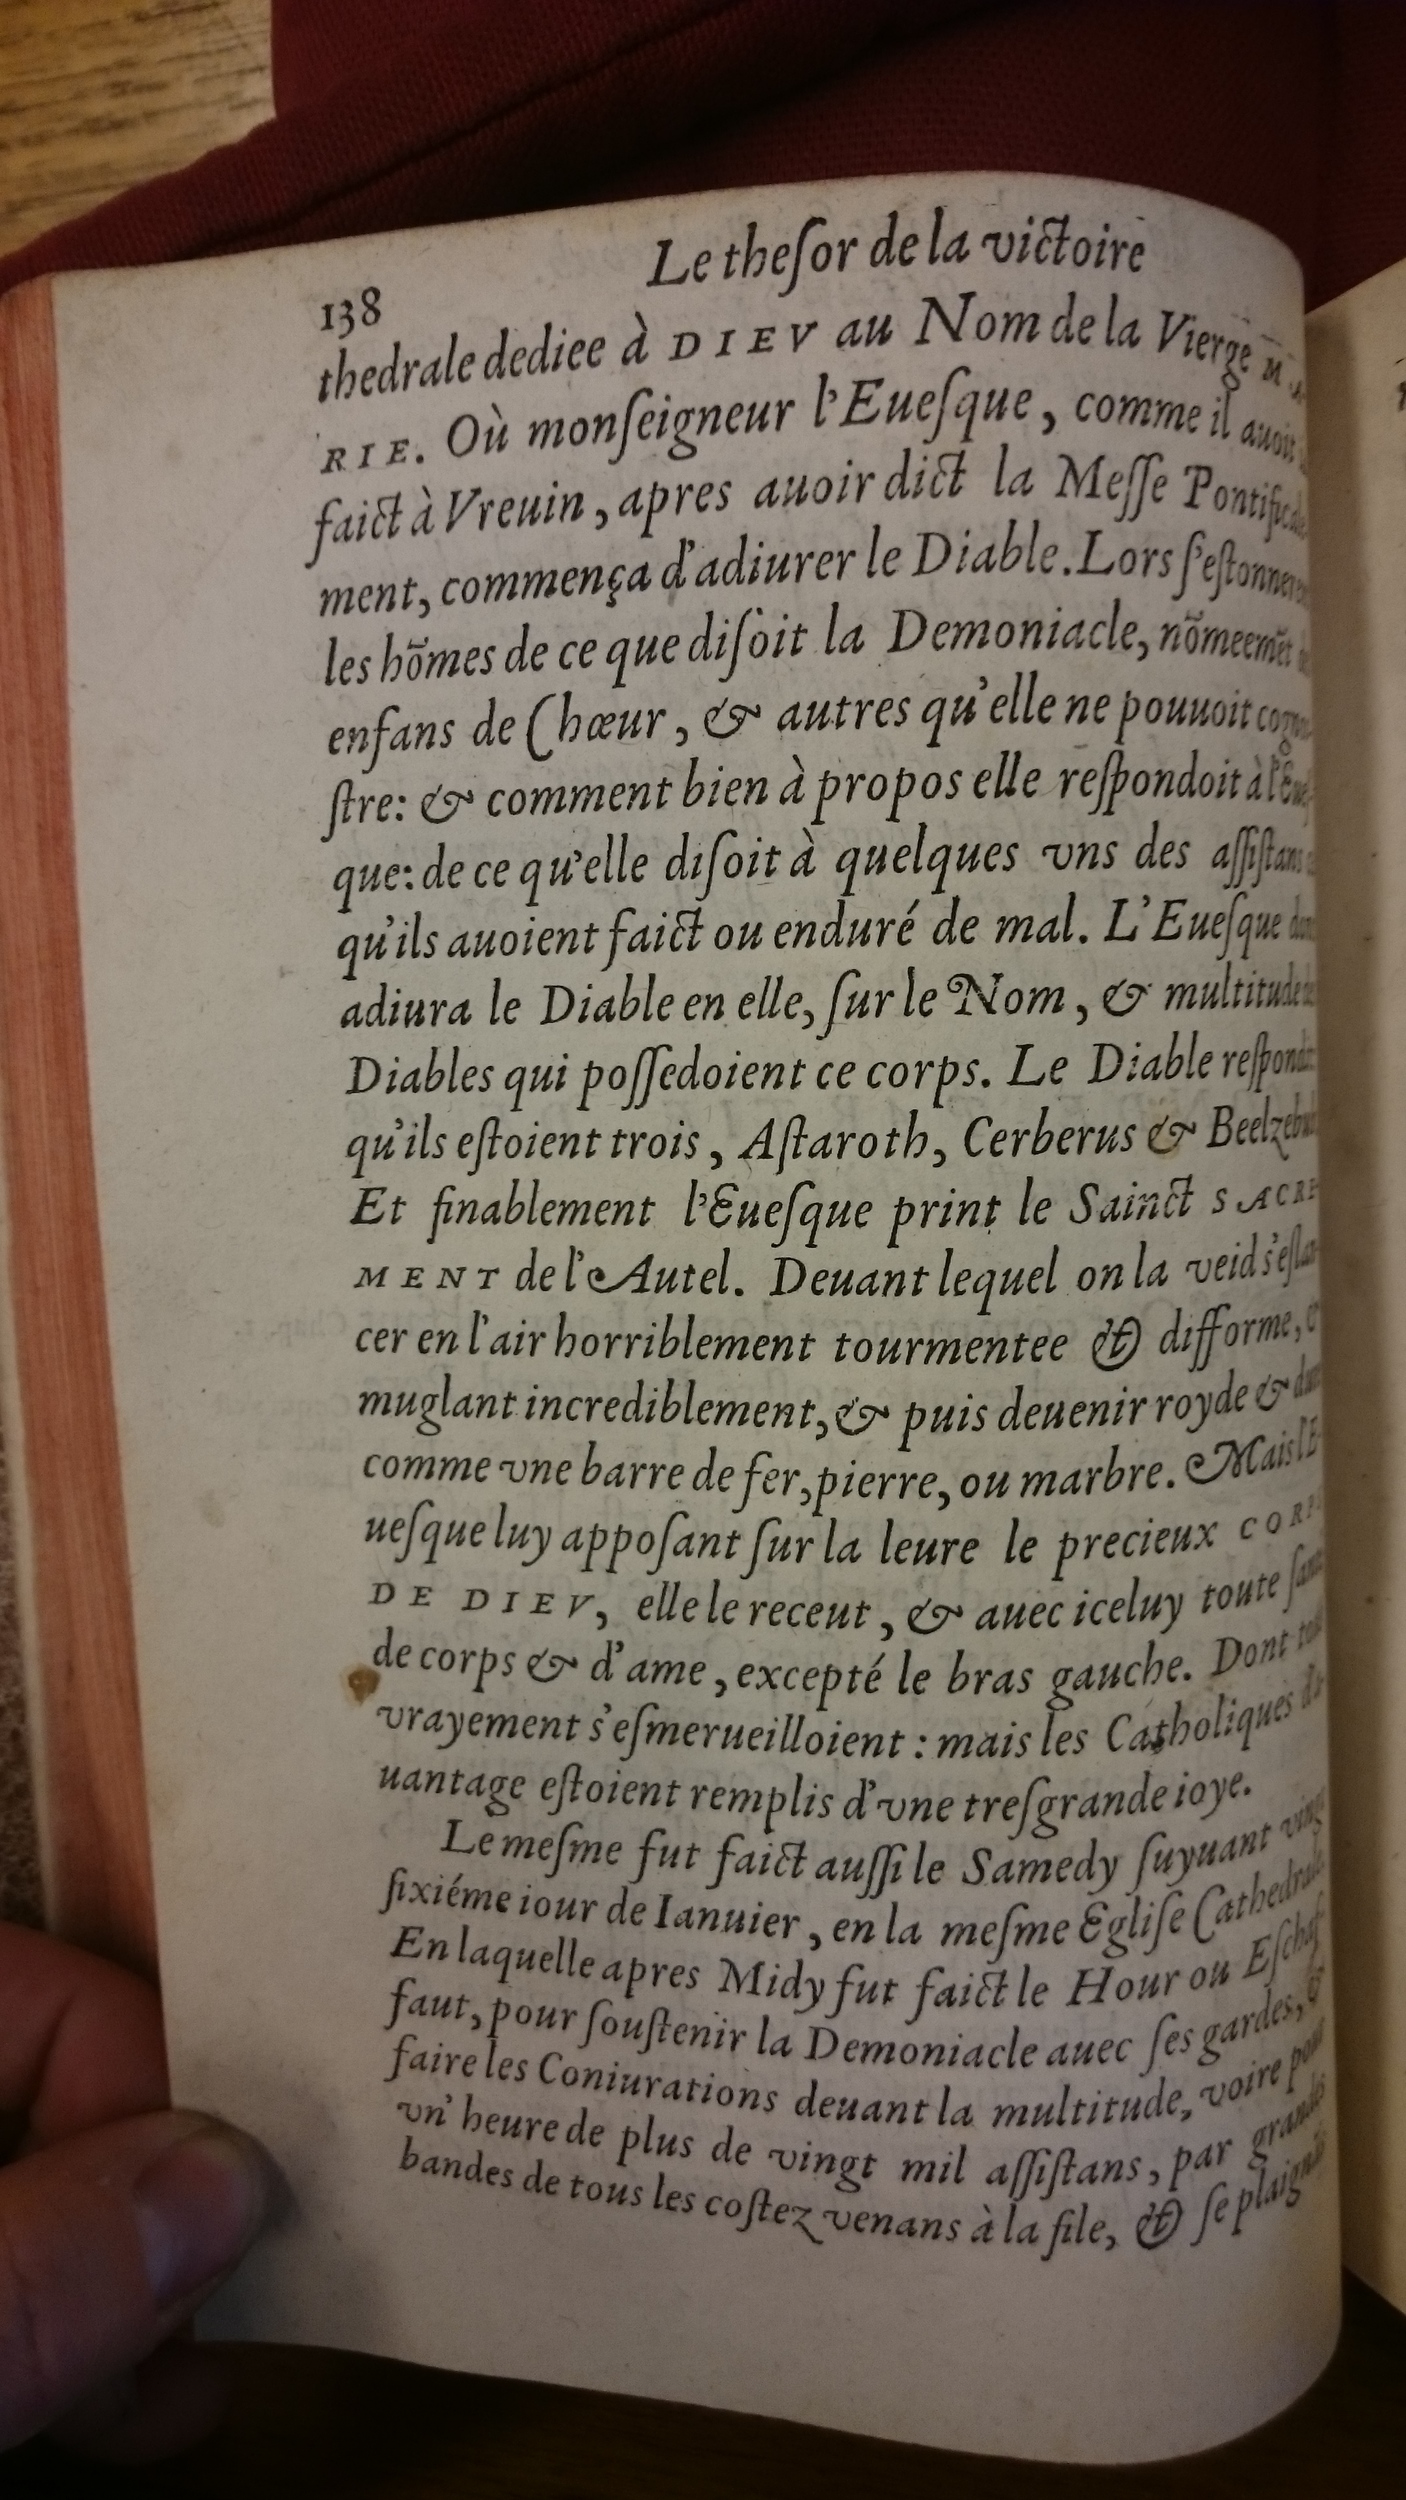 Le theſor de la victoire
138
thedrale dediee à DIEV au Nom de la Vierge
RIE. Où monſeigneur l'Eueſque, comme il auoit
faict à Vreuin, apres auoir dict la Meſſe Pontificale
ment, commença d'adiurer le Diable. Lors ſ'eſtonnerent
les hõmes de ce que diſoit la Demoniacle, nõmeemẽt
enfans de Chœur, & autres qu'elle ne pouuoit
ſtre: & comment bien à propos elle reſpondoit à
que: de ce qu'elle diſoit à quelques vns des aſſiſtans
qu'ils auoient faict ou enduré de mal. L'Eueſque
adiura le Diable en elle, ſur le Nom, & multitude
Diables qui poſſedoient ce corps. Le Diable
qu'ils eſtoient trois, Aſtaroth, Cerberus & Beelzebub
Et finablement l'Eueſque print le Sainct SACRE-
MENT de l'Autel. Deuant lequel on la veid s'eſlan-
cer en l'air horriblement tourmentee & difforme,
muglant incrediblement, & puis deuenir royde &
comme vne barre de fer, pierre, ou marbre. Mais l'E-
ueſque luy appoſant ſur la leure le precieux CORPS
DE DIEV, elle le receut, & auec iceluy toute
de corps & d'ame, excepté le bras gauche. Dont
vrayement s'eſmerueilloient: mais les Catholiques
uantage eſtoient remplis d'vne treſgrande ioye.
Le meſme fut faict auſſi le Samedy ſuyuant vingt
ſixiéme iour de Ianuier, en la meſme Egliſe Cathedrale
En laquelle apres Midy fut faict le Hour ou Eſchaf
faut, pour ſouſtenir la Demoniacle auec ſes gardes, &
faire les Coniurations deuant la multitude, voire pour
vn' heure de plus de vingt mil aſſiſtans, par grandes
bandes de tous les coſtez venans à la file, & ſe